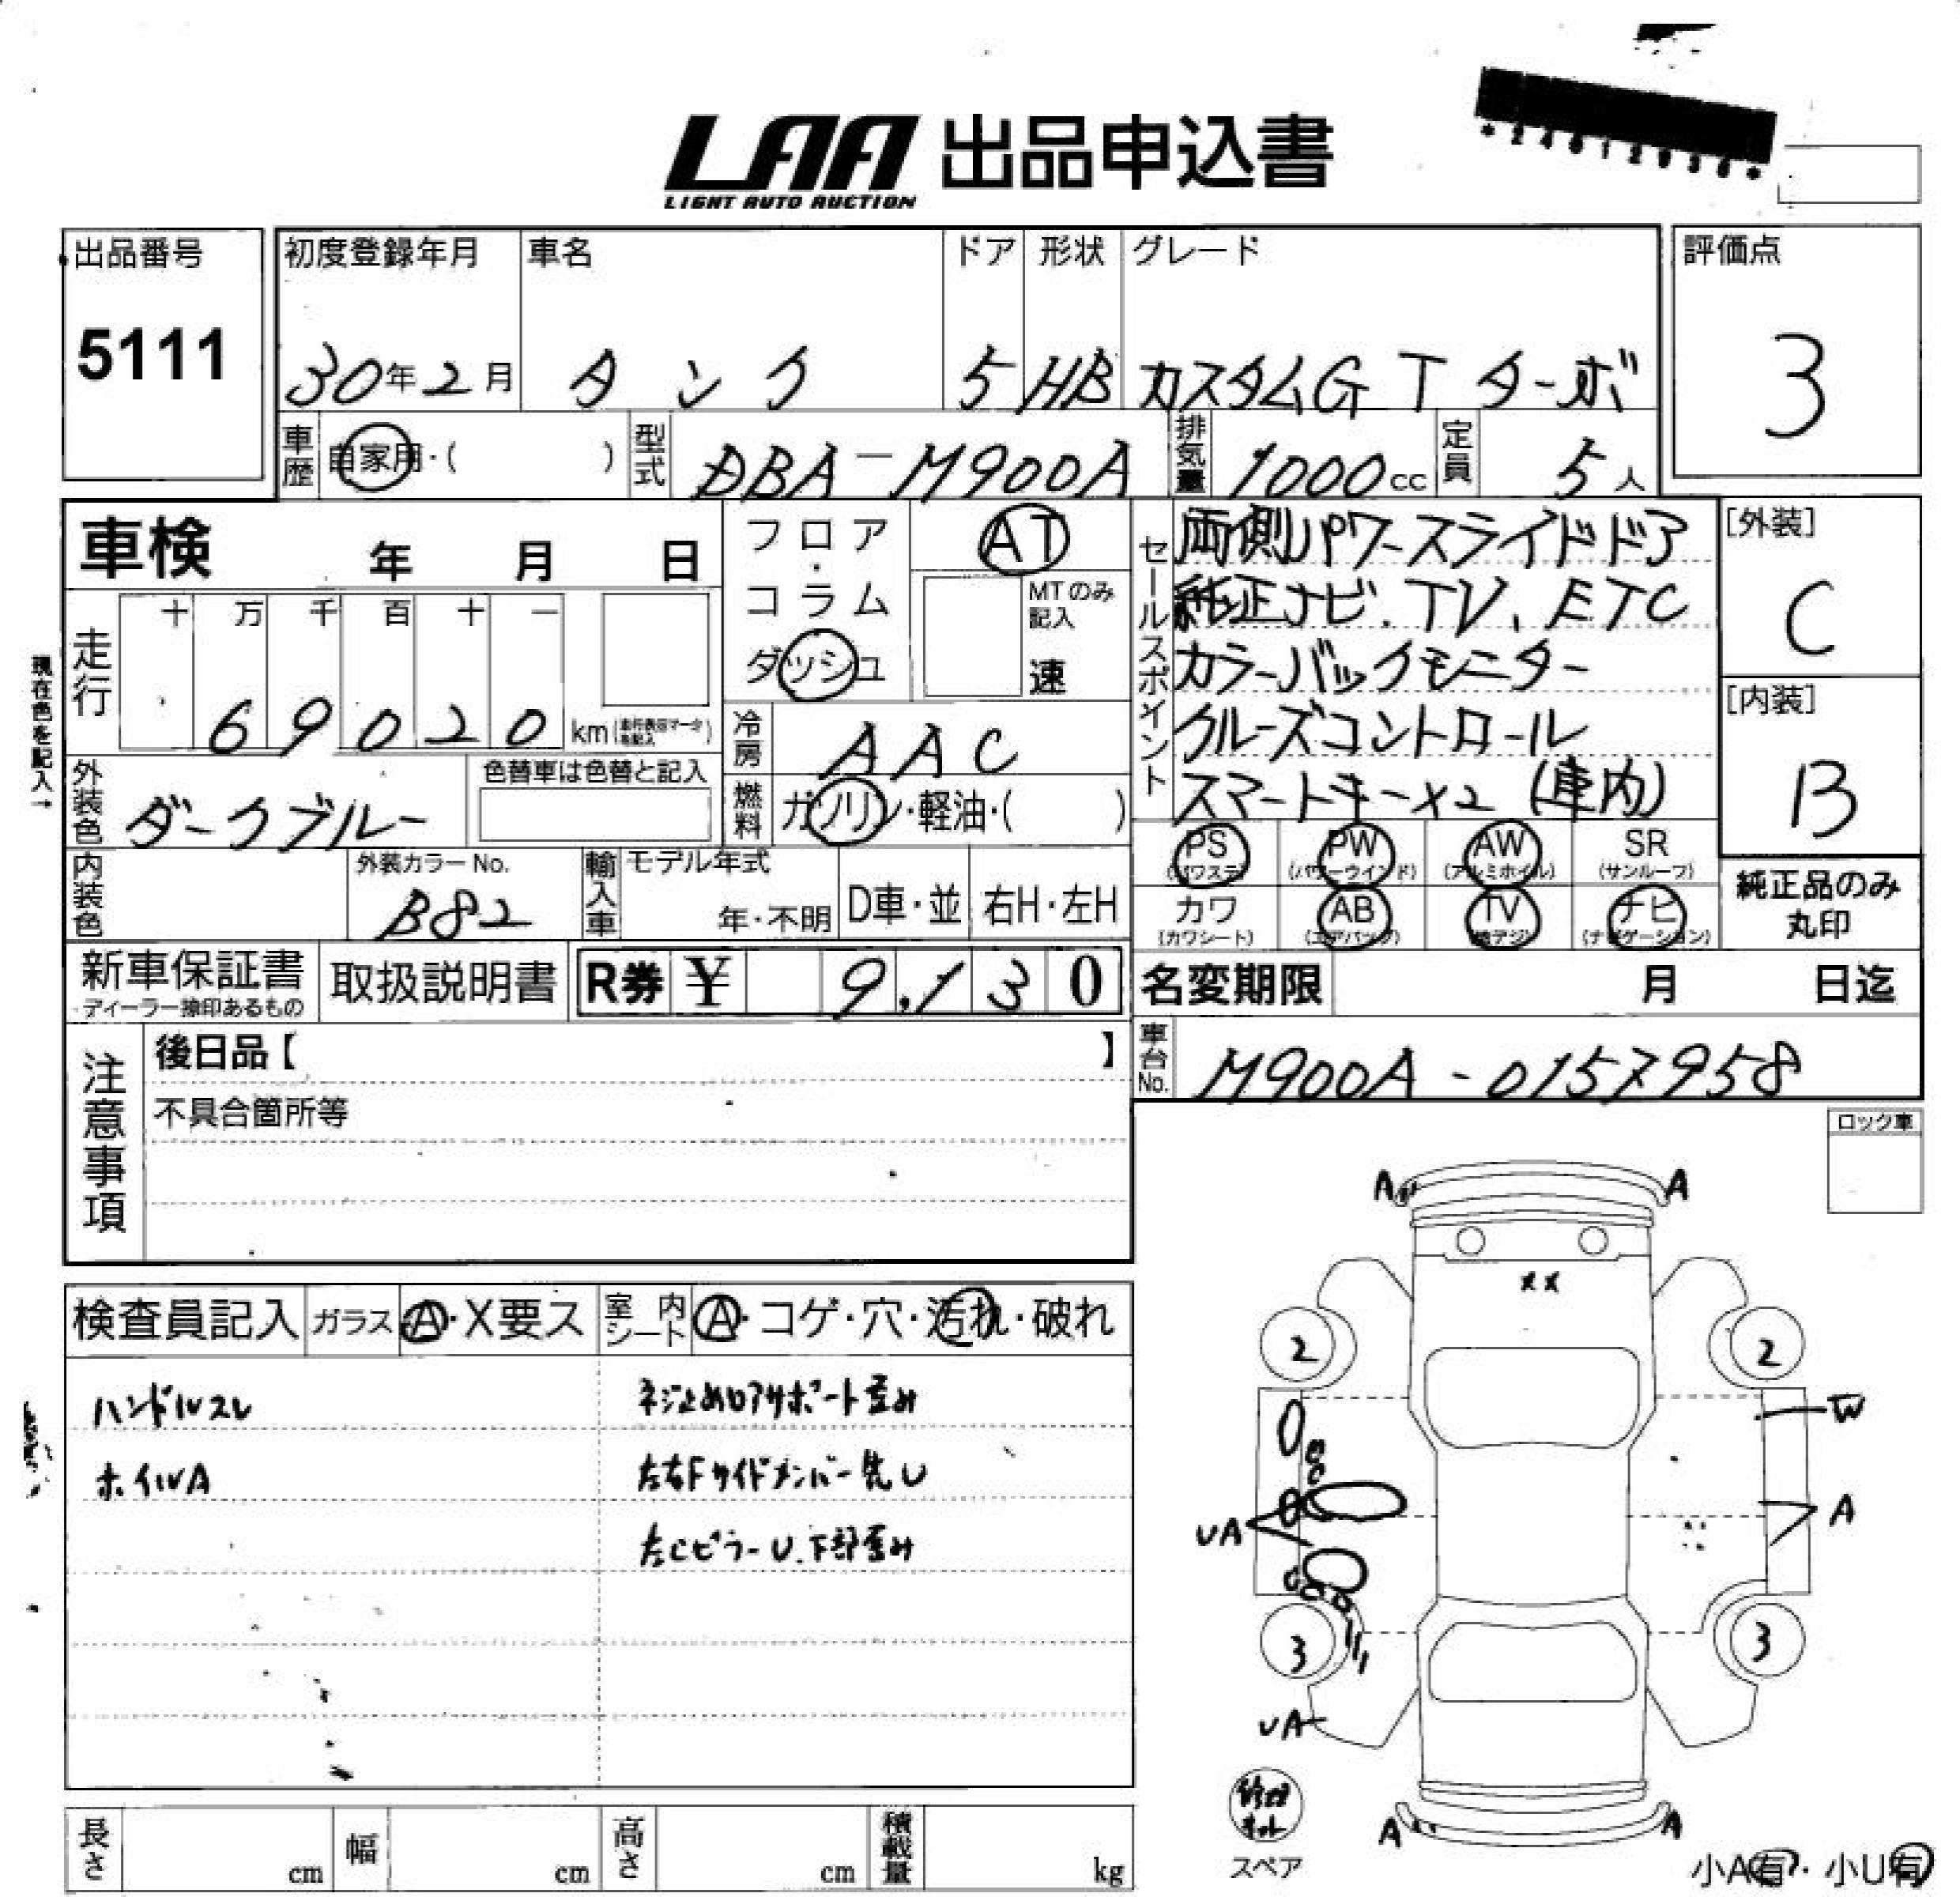 LAA 出品申込書
LIGHT AUTO AUCTION
出品番号
5111
初度登録年月
30年2月
車名
タンク
ドア
5
形状
HB
グレード
カスタムG T ターボ
評価点
3
車歴
自家用・( )
型式
DBA-M900A
排気量
1000cc
定員
5人
車検 年 月 日
フロア・コラム
ダッシュ
AT
MTのみ記入
速
セールスポイント
両側パワースライドドア
純正ナビ.TV、ETC
カラーバックモニター
クルーズコントロール
スマートキー×2 (庫内)
[外装]
C
[内装]
B
現在色を記入→
走行
十 万 千 百 十 一
69020
km
冷房
AAC
外装色
ダークブルー
色替車は色替と記入
燃料
ガソリン・軽油・( )
PS PW AW SR
(パワステ) (パワーウインド) (アルミホイル) (サンルーフ)
カワ AB TV ナビ
(カワシート) (エアバッグ) (地デジ) (ナビゲーション)
純正品のみ
丸印
内装色
外装カラーNo.
B82
輸入車
モデル年式
年・不明
D車・並
右H・左H
新車保証書
ディーラー捺印あるもの
取扱説明書
R券 ¥ 9,130
名変期限 月 日迄
車台No.
M900A-0157958
注意事項
後日品【 】
不具合箇所等
ロック車
検査員記入
ガラス
A・X要ス
室内シート
A・コゲ・穴・汚れ・破れ
ハンドルスレ
ホイルA
ネジ止めロアサポート歪み
左右Fサイドメンバー先U
左Cピラー U.下部歪み
A A
××
2 2
W
UA
A
3 3
UA
A A
修理キット
スペア
小A有・小U有
長さ cm
幅 cm
高さ cm
積載量 kg